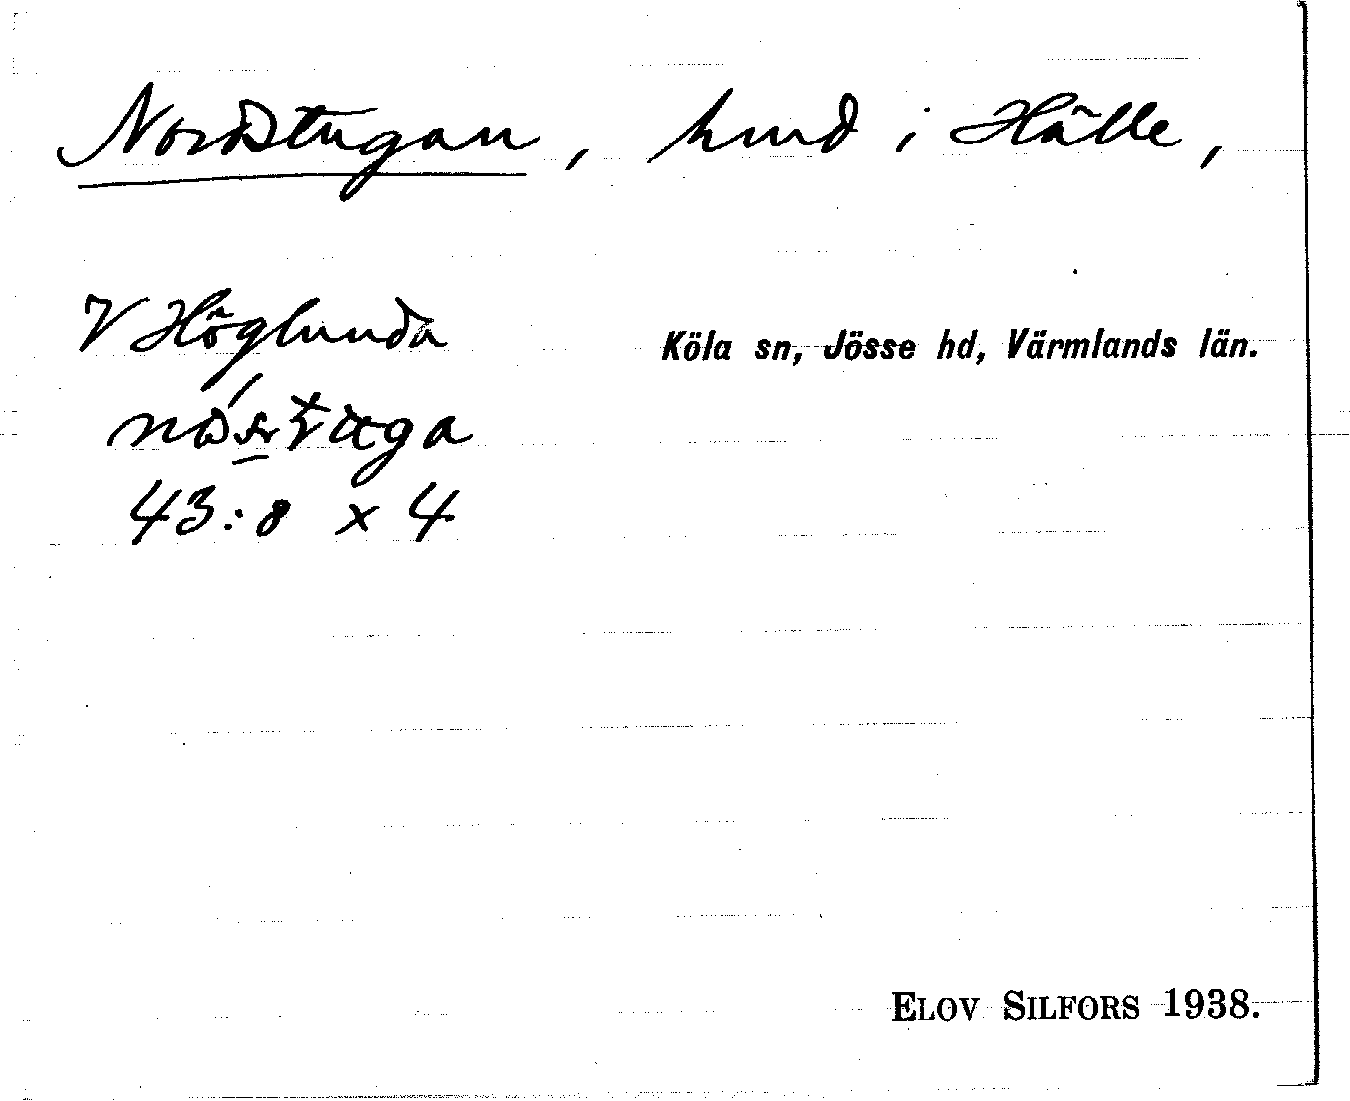 Nordstugan, hmd i Hålle,
V Höglunda
Köla sn, Jösse hd, Värmlands län.
43:8 x 4
ELOV SILFORS 1938.